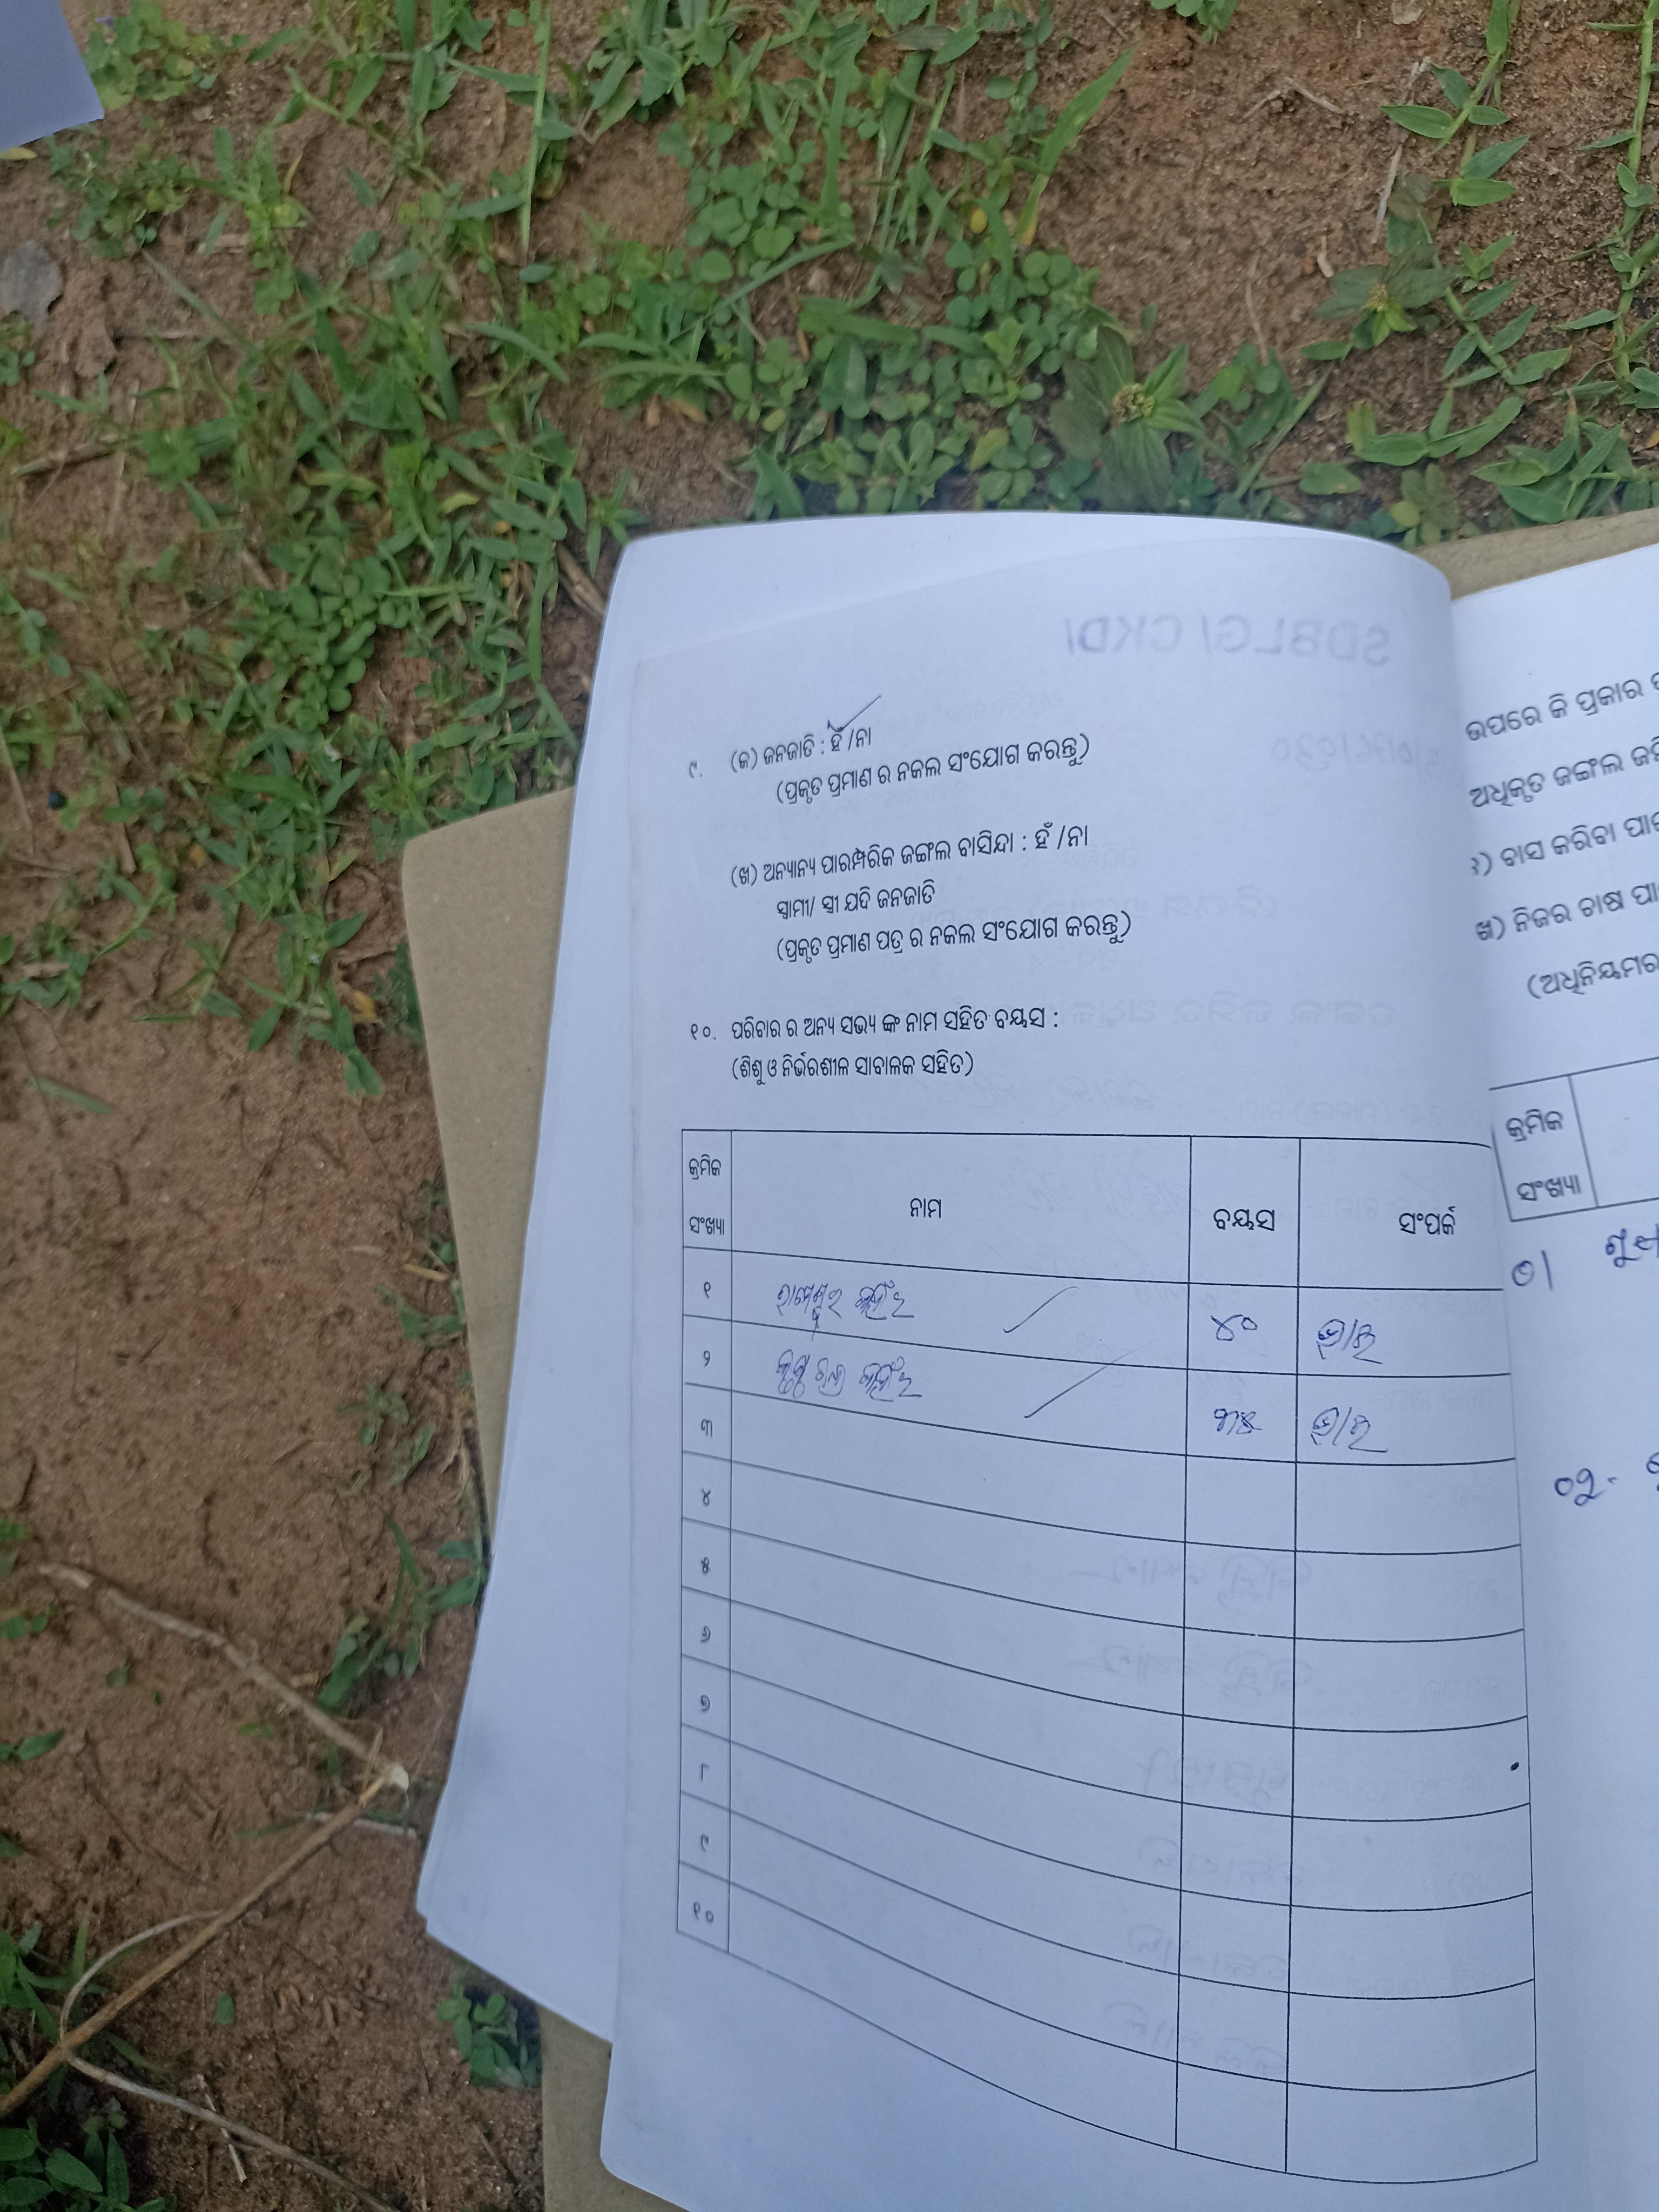 ୯. (କ) ଜନଜାତି : ହଁ /ନା
(ପ୍ରକୃତ ପ୍ରମାଣ ର ନକଲ ସଂଯୋଗ କରନ୍ତୁ)
(ଖ) ଅନ୍ୟାନ୍ୟ ପାରମ୍ପରିକ ଜଙ୍ଗଲ ବାସିନ୍ଦା : ହଁ /ନା
ସ୍ୱାମୀ/ ସ୍ତ୍ରୀ ଯଦି ଜନଜାତି
(ପ୍ରକୃତ ପ୍ରମାଣ ପତ୍ର ର ନକଲ ସଂଯୋଗ କରନ୍ତୁ)
୧୦. ପରିବାର ର ଅନ୍ୟ ସଭ୍ୟ ଙ୍କ ନାମ ସହିତ ବୟସ :
(ଶିଶୁ ଓ ନିର୍ଭରଶୀଳ ସାବାଳକ ସହିତ)
କ୍ରମିକ ସଂଖ୍ୟା ନାମ ବୟସ ସଂପର୍କ
୧ ରାମେଶ୍ୱର ୪୦ ଭାଇ
୨ ୩୫ ଭାଇ
୩
୪
୫
୬
୭
୮
୯
୧୦
ଉପରେ କି ପ୍ରକାର
ଅଧିକୃତ ଜଙ୍ଗଲ
ବାସ କରିବା
ଖ) ନିଜର ଚାଷ
(ଅଧିନିୟମର
କ୍ରମିକ
ସଂଖ୍ୟା
୦୧
୦୨-